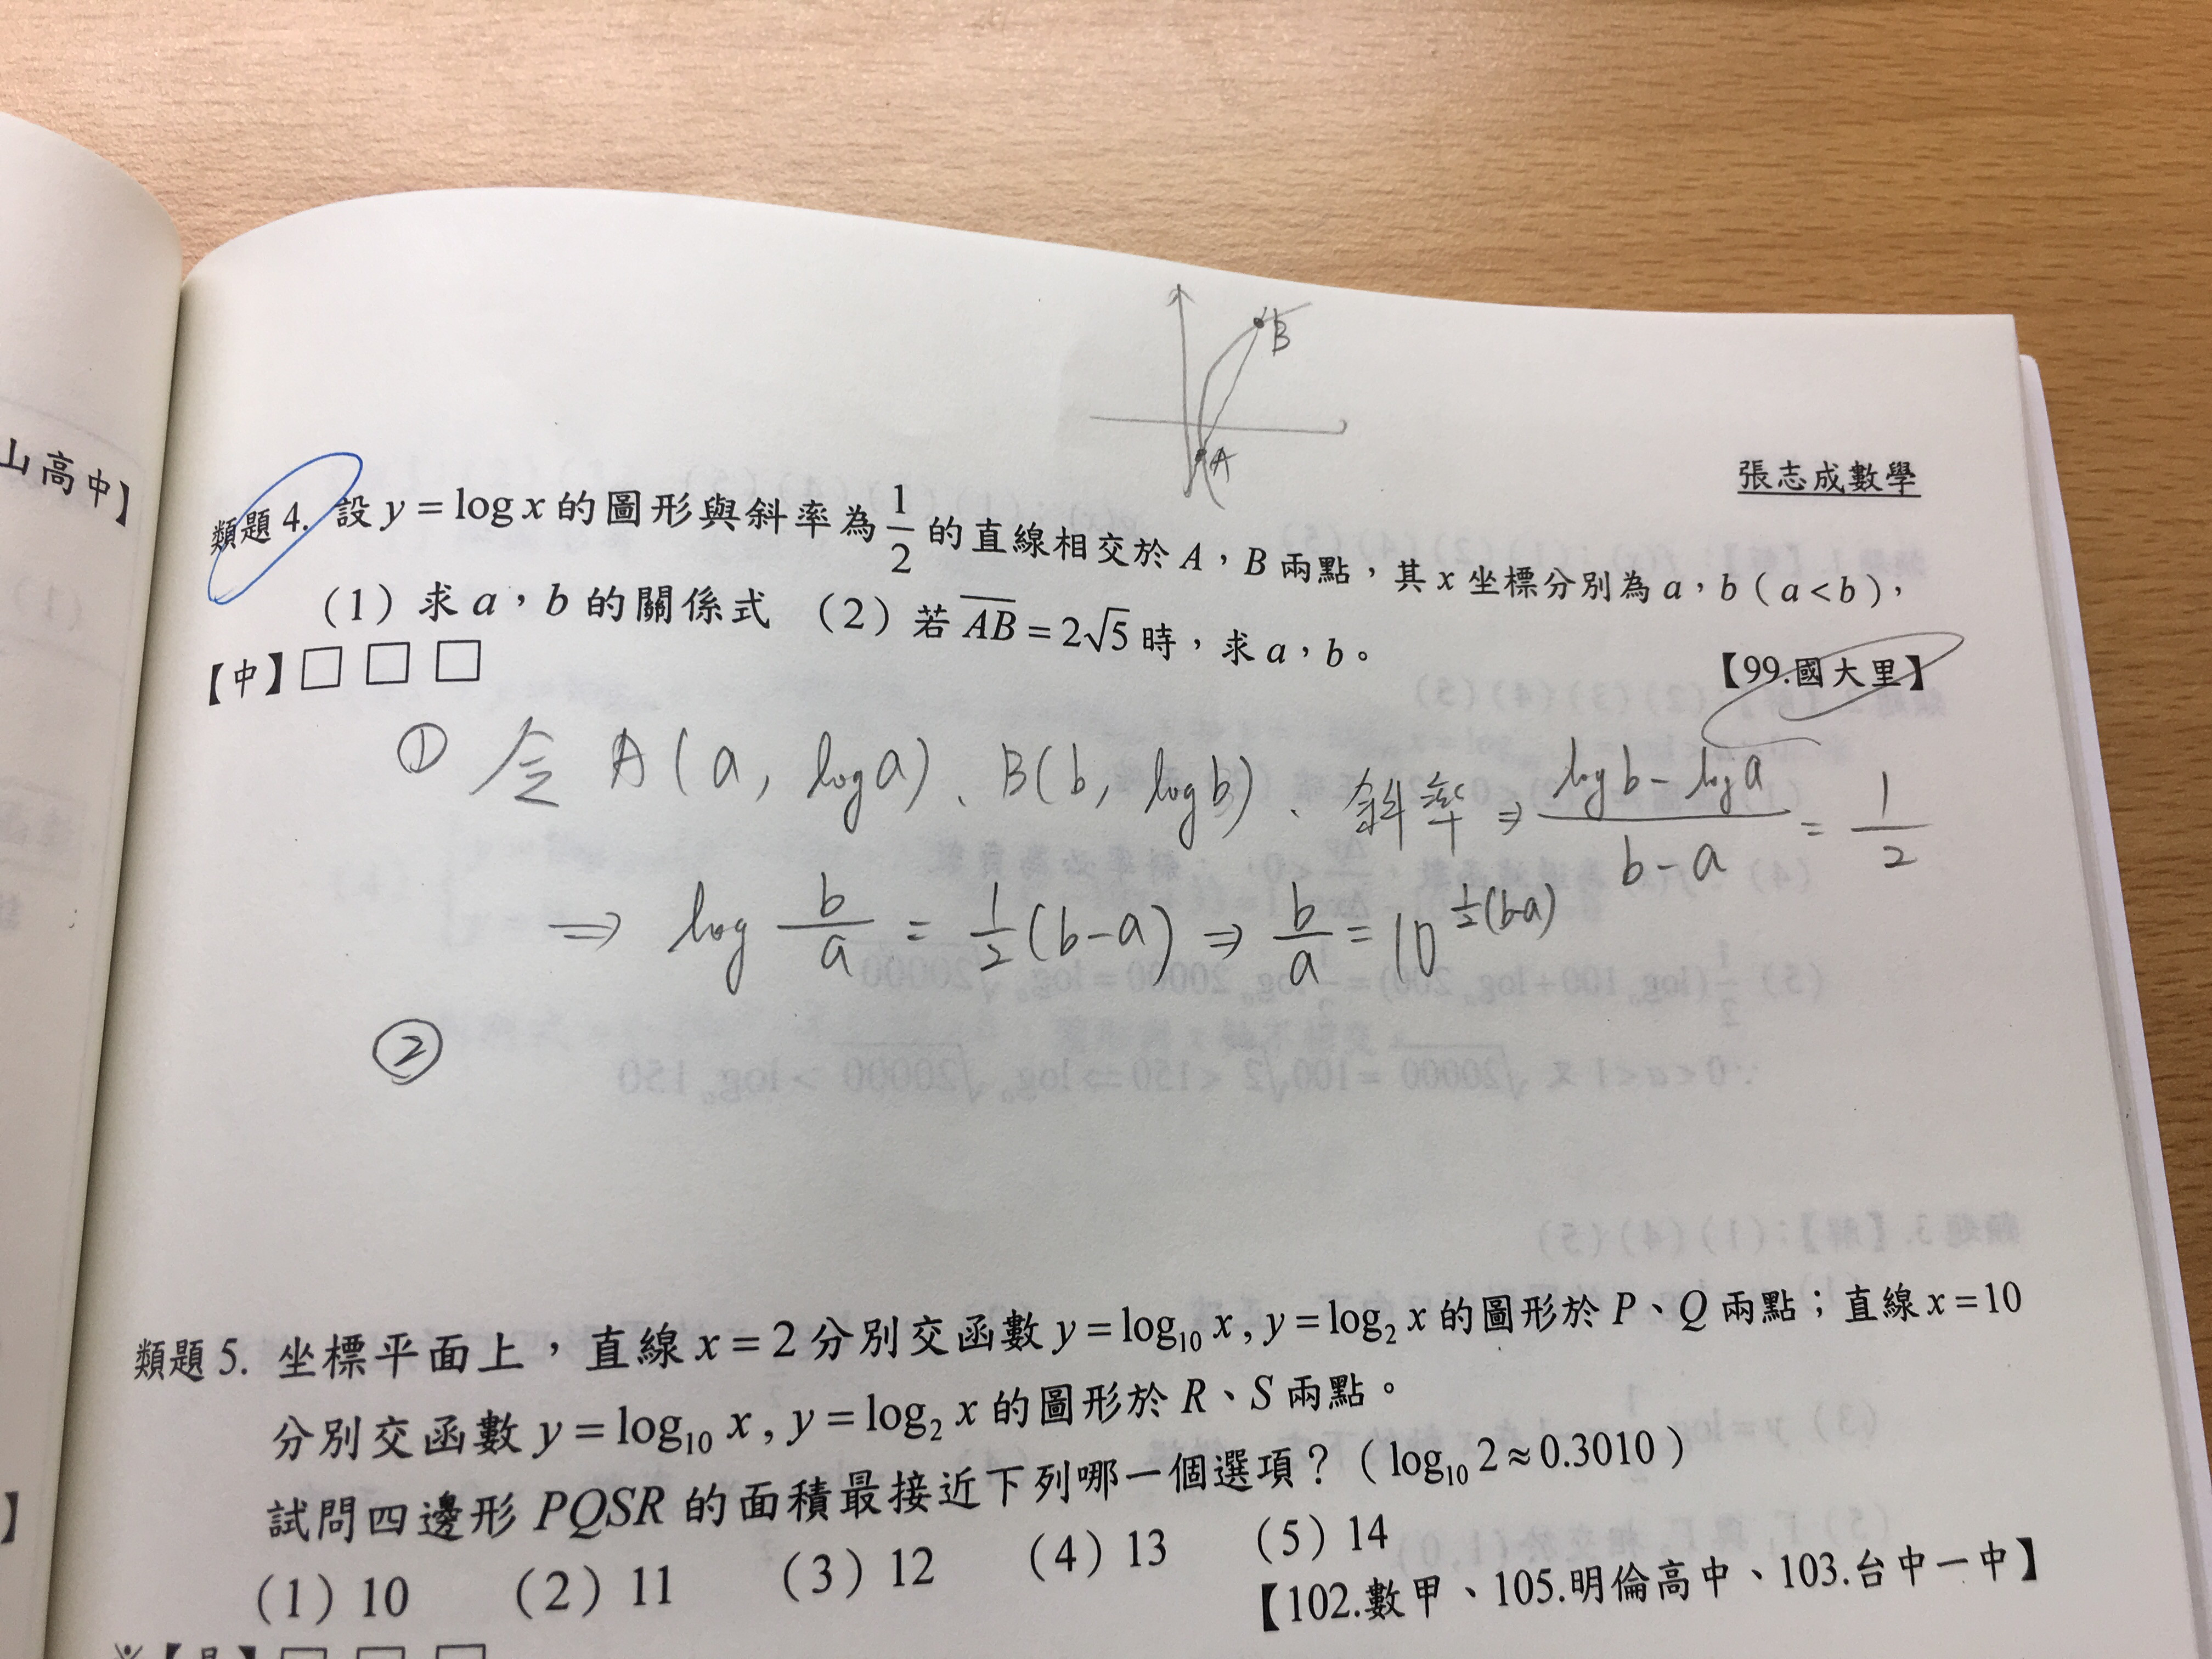 B
A
山高中】
張志成數學
類題 4. 設 y = log x 的圖形與斜率為 1/2 的直線相交於 A，B 兩點，其 x 坐標分別為 a，b（a < b），
（1）求 a，b 的關係式 （2）若 \overline{AB} = 2√5 時，求 a，b。
【中】□ □ □ 【99.國大里】
① 令 A(a, log a)、B(b, log b)、斜率 ⇒ (log b - log a)/(b - a) = 1/2
⇒ log b/a = 1/2 (b-a) ⇒ b/a = 10^{1/2(b-a)}
②
類題 5. 坐標平面上，直線 x = 2 分別交函數 y = log₁₀ x , y = log₂ x 的圖形於 P、Q 兩點；直線 x = 10
分別交函數 y = log₁₀ x , y = log₂ x 的圖形於 R、S 兩點。
試問四邊形 PQSR 的面積最接近下列哪一個選項？（log₁₀ 2 ≈ 0.3010）
（1）10 （2）11 （3）12 （4）13 （5）14
【102.數甲、105.明倫高中、103.台中一中】